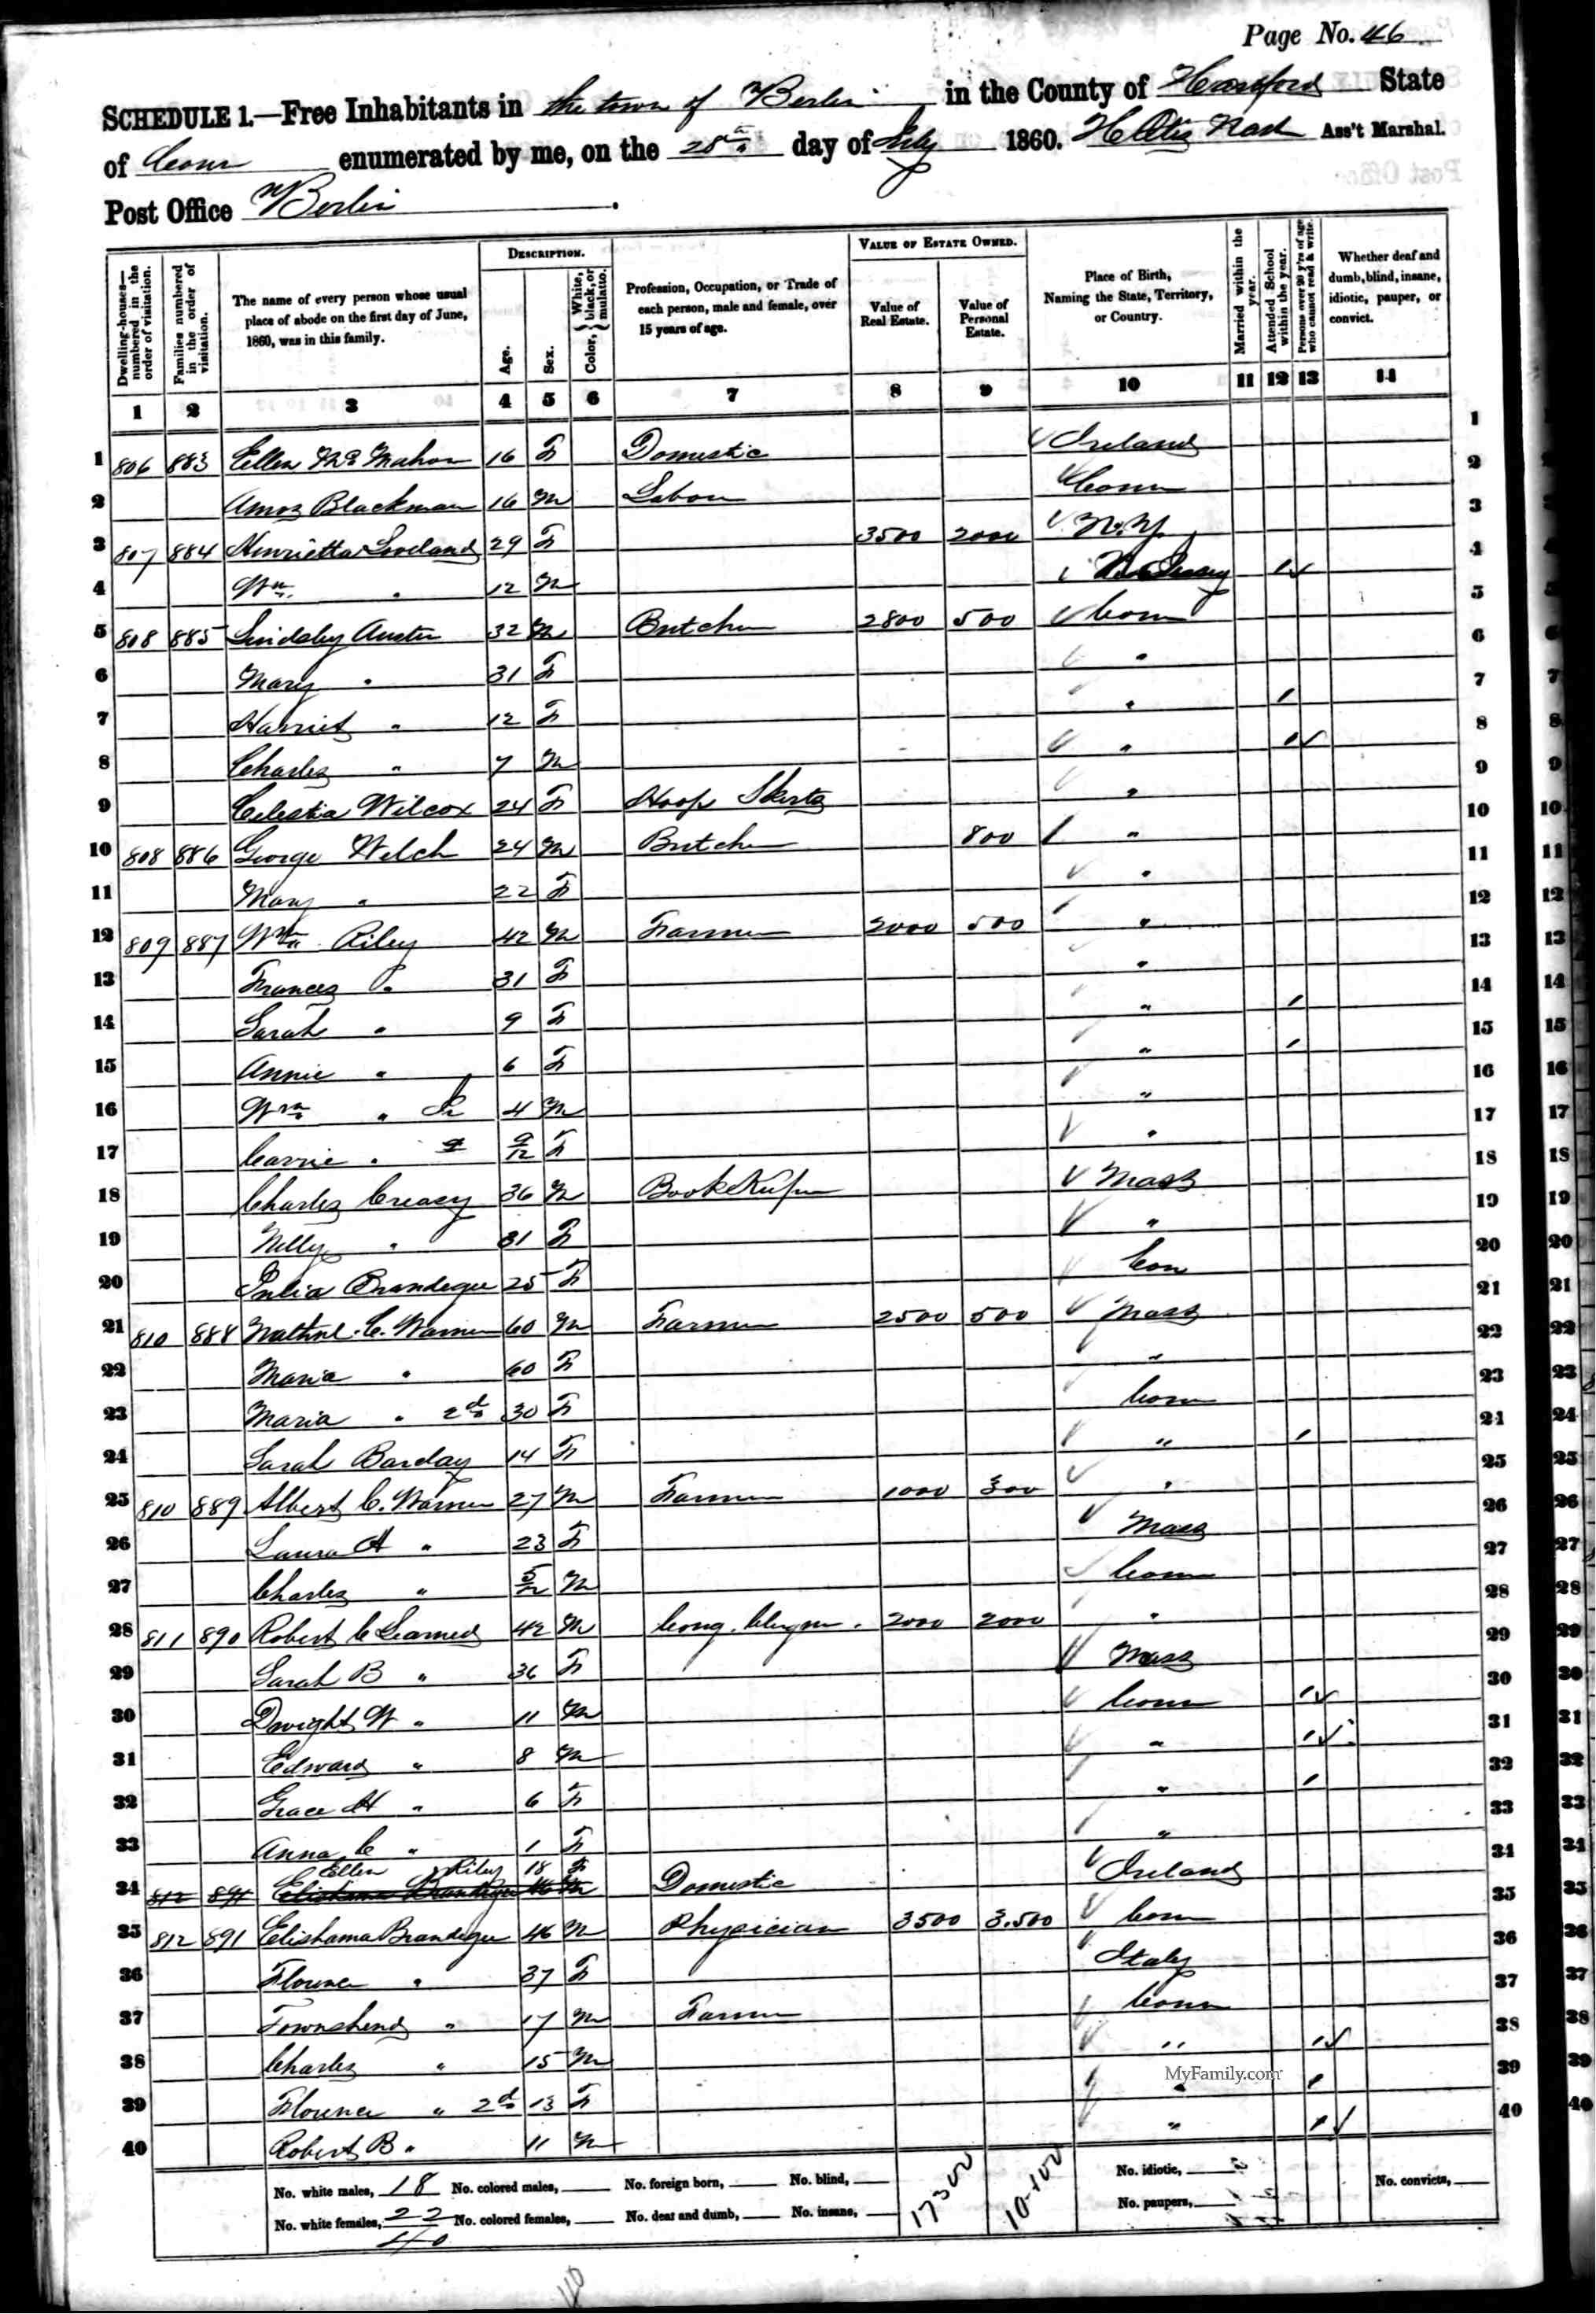 Page No. 46
SCHEDULE 1.—Free Inhabitants in the town of Berlin in the County of Hartford State
of Conn enumerated by me, on the 28th day of July 1860. H Otis Nash Ass't Marshal.
Post Office Berlin
Dwelling-houses—numbered in the order of visitation.
Families numbered in the order of visitation.
The name of every person whose usual place of abode on the first day of June, 1860, was in this family.
DESCRIPTION.
Age.
Sex.
Color, { White, black, or mulatto.
Profession, Occupation, or Trade of each person, male and female, over 15 years of age.
VALUE OF ESTATE OWNED.
Value of Real Estate.
Value of Personal Estate.
Place of Birth, Naming the State, Territory, or Country.
Married within the year.
Attended School within the year.
Persons over 20 y'rs of age who cannot read & write.
Whether deaf and dumb, blind, insane, idiotic, pauper, or convict.
1 2 3 4 5 6 7 8 9 10 11 12 13 14
1 806 883 Ellen McMahon 16 F Domestic Ireland 1
2 Amos Blackman 16 M Labour Conn 2
3 807 884 Henrietta Loveland 29 F 3500 2000 N.Y. 3
4 Wm. " 12 M New Jersey / 4
5 808 885 Lindsley Austin 32 M Butcher 2800 500 Conn 5
6 Mary " 31 F " 6
7 Harriet " 12 F " / 7
8 Charles " 7 M " / 8
9 Celestia Wilcox 24 F Hoop Skirts " 9
10 808 886 George Welch 24 M Butcher 800 " 10
11 Mary " 22 F " 11
12 809 887 Wm Riley 42 M Farmer 2000 500 " 12
13 Frances P. 31 F " 13
14 Sarah " 9 F " / 14
15 Annie " 6 F " / 15
16 Wm " Jr 4 M " 16
17 Carrie " 9/12 F " 17
18 Charles Creasy 36 M Book Keeper Mass 18
19 Nelly " 31 F " 19
20 Julia Brandegee 25 F Con 20
21 810 888 Nathnl. C. Warner 60 M Farmer 2500 500 Mass 21
22 Maria " 60 F " 22
23 Maria " 2d 30 F Conn 23
24 Sarah Barclay 14 F " / 24
25 810 889 Albert C. Warner 27 M Farmer 1000 300 " 25
26 Laura A " 23 F Mass 26
27 Charles " 5/12 M Conn 27
28 811 890 Robert C Learned 42 M Cong. Clergm. 2000 2000 " 28
29 Sarah B " 36 F Mass 29
30 Dwight W " 11 M Conn / 30
31 Edward " 8 M " / 31
32 Grace H " 6 F " / 32
33 Anna C " 1 F " 33
Ellen Riley 18 F
34 812 891 Elishama Brandegee 46 M Domestic Ireland 34
35 812 891 Elishama Brandegee 46 M Physician 3500 3.500 Conn 35
36 Florence " 37 F Italy 36
37 Townshend " 17 M Farmer Conn 37
38 Charles " 15 M " / 38
39 Florence " 2d 13 F " / 39
40 Robert B " 11 M " / 40
MyFamily.com
No. white males, 18 No. colored males, No. foreign born, No. blind, 17300 10-100 No. idiotic, No. convicts,
No. white females, 22 No. colored females, No. deaf and dumb, No. insane, No. paupers,
40
40